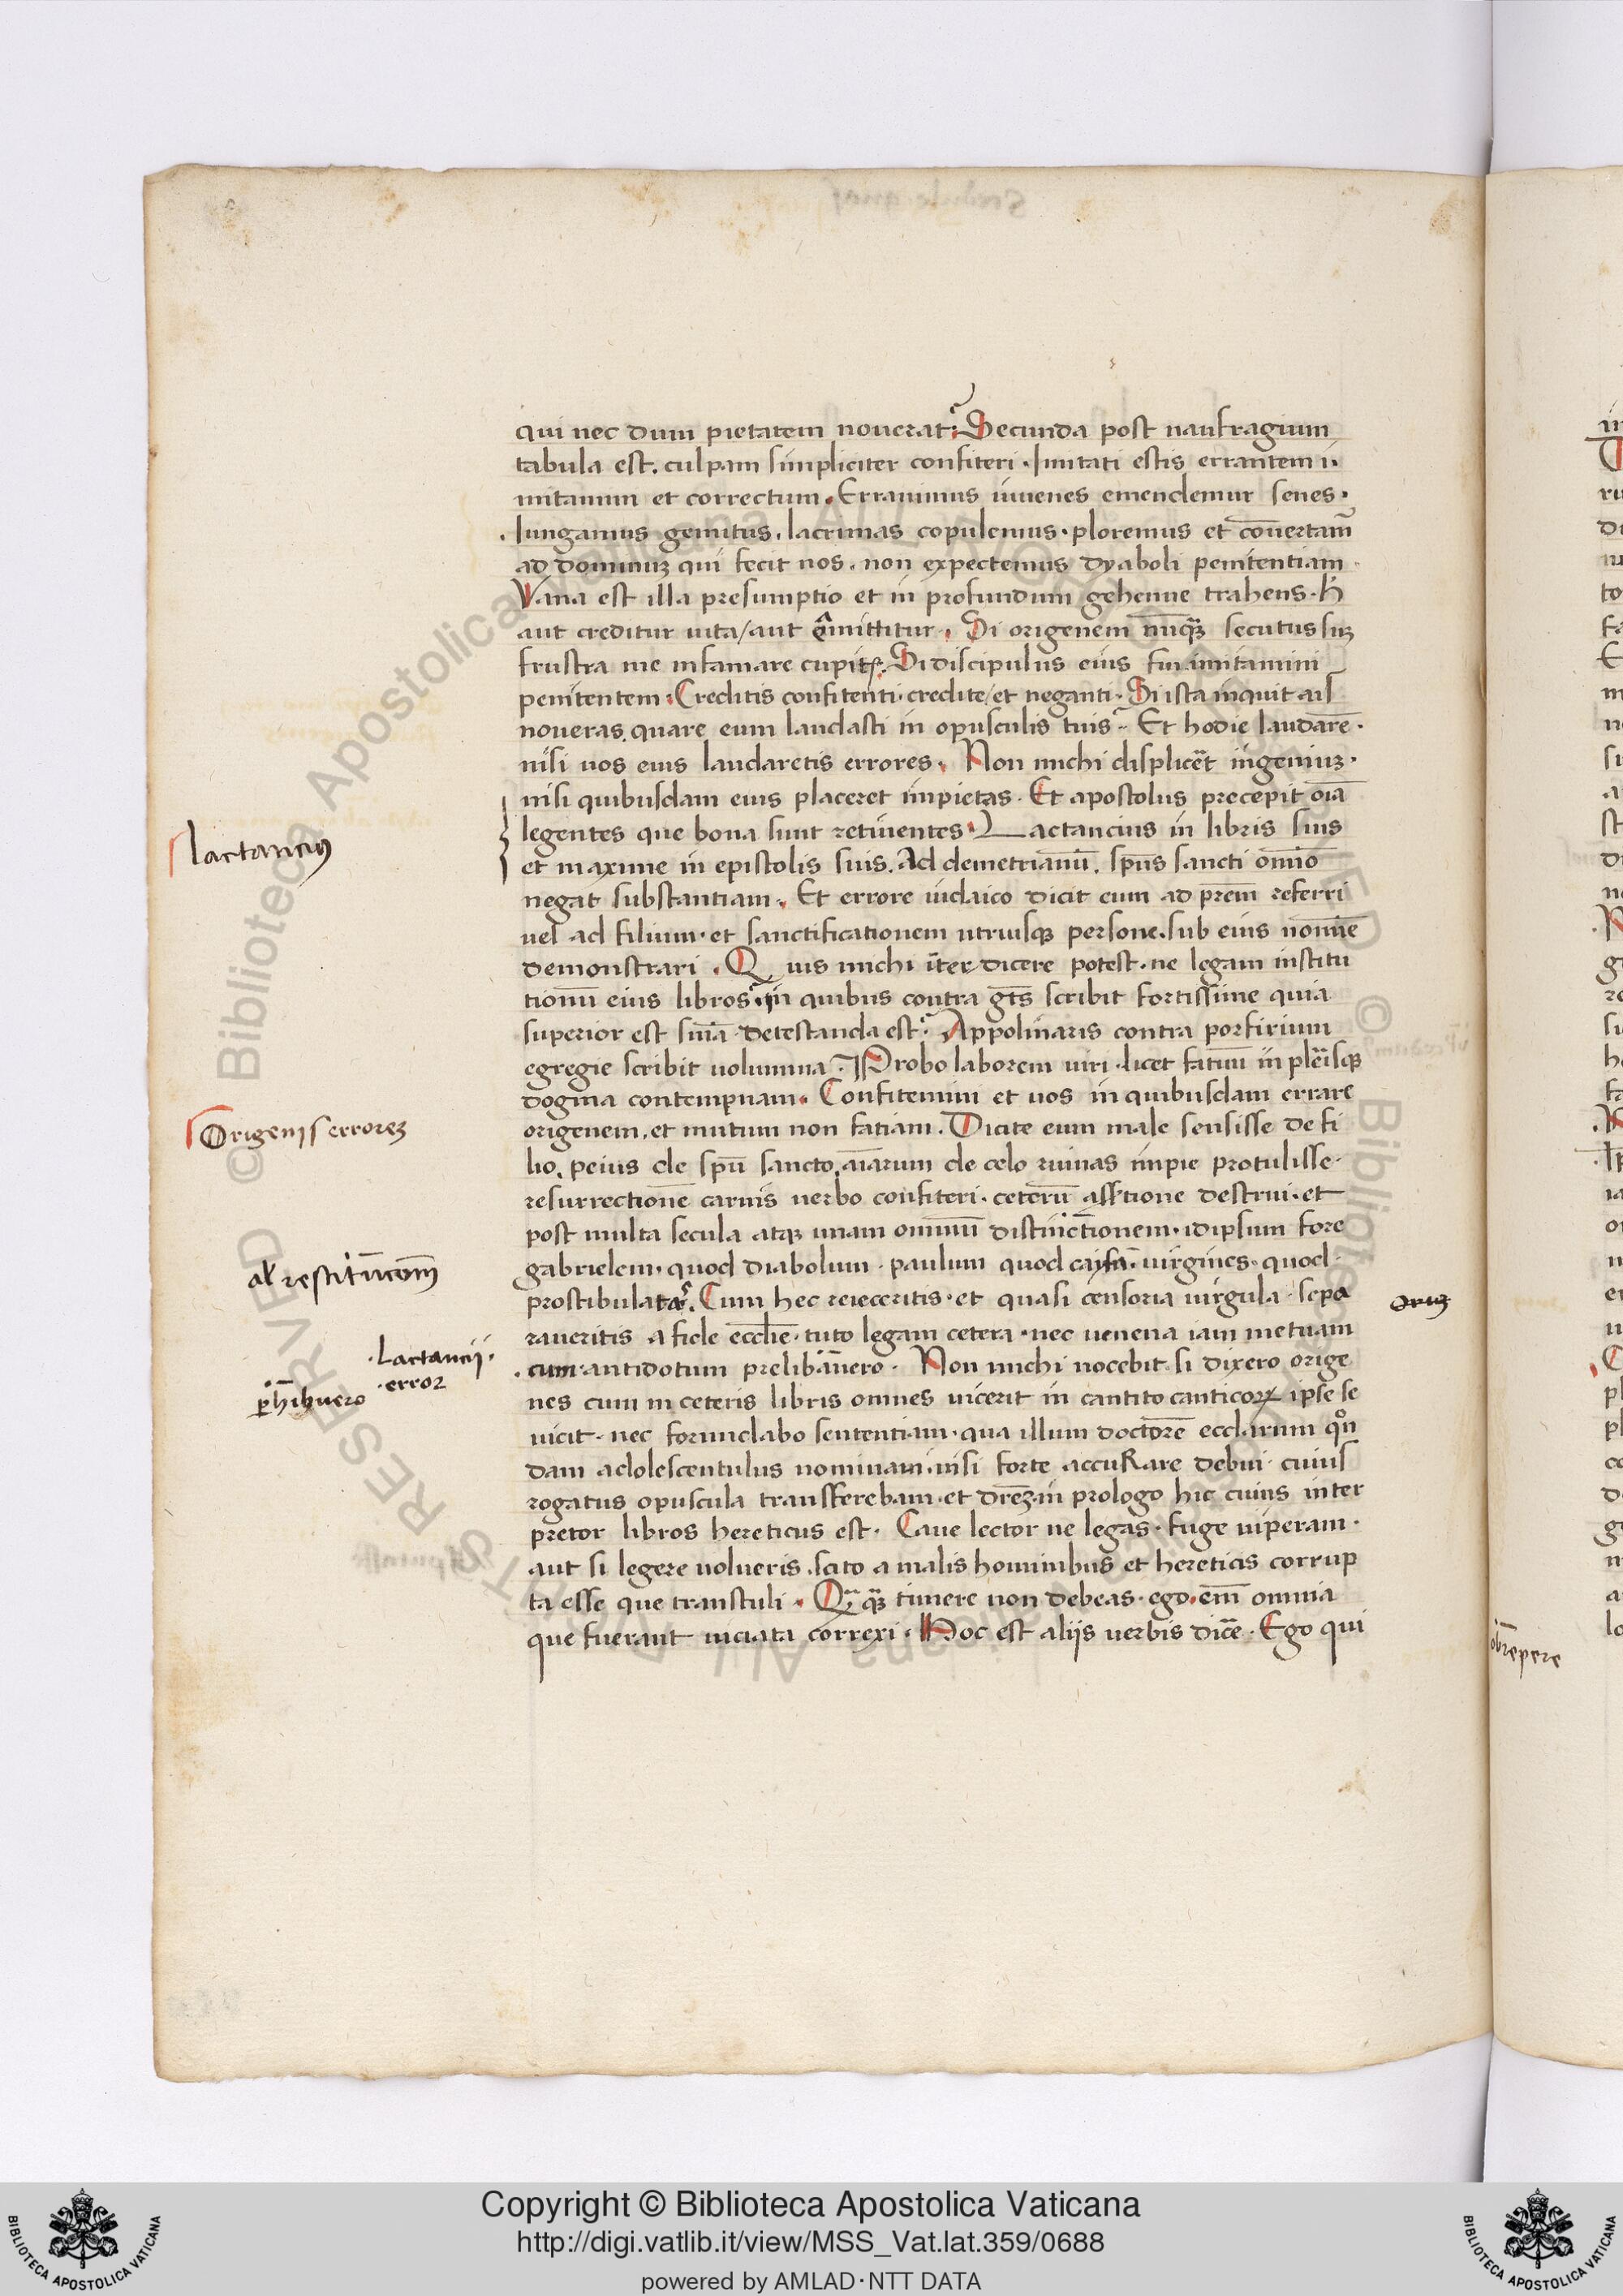 qui nec dum pietatem nouerat. Secunda post naufragium
tabula est. culpam simpliciter confiteri. Imitati estis errantem i
mitamini et correctum. Errauimus iuuenes emendemur senes.
Iungamus gemitus. lacrimas copulemus. ploremus et cōuertam̄
ad dominuꝫ qui fecit nos. non expectemus dyaboli penitentiam
Vana est illa presumptio et in profundum gehenne trahens. h̄
aut creditur uita/aut
Si origenem nūqꝫ secutus suꝫ
frustra me infamare cupitis. Si discipulus eius fui imitamini
penitentem. Creditis confitenti. credite/et neganti. Si ista inquit ais
noueras. quare eum laudasti in opusculis tuis. Et hodie laudarē.
nisi uos eius laudaretis errores. Non michi displicēt ingeniuꝫ.
nisi quibusdam eius placeret impietas. Et apostolus precepit oīa
legentes que bona sunt retinentes. Lactancius in libris suis
et maxime in epistolis suis. Ad demetrianū. sp̄us sancti om̄io
negat substantiam. Et errore iudaico dicit eum ad prē̄m referri
uel ad filium. et sanctificationem utriusqꝫ persone. sub eius nomīe
demonstrari. Quis michi īterdicere potest. ne legam institu
tionū eius libros. in quibus contra gt̄s scribit fortissime quia
superior est sn̄ia detestanda est. Appolinaris contra porfirium
egregie scribit uolumina. Probo laborem uiri. licet fatuū in plērisqꝫ
dogma contempnam. Confitemini et uos in quibusdam errare
origenem. et mutum non fatiam. Dicite eum male sensisse de fi
lio. peius de spū sancto. aīarum de celo ruinas impie protulisse.
resurrectionē carnis uerbo confiteri. ceterū assertione destrui. et
post multa secula atqꝫ unam omniū distinctionem. idipsum fore
gabrielem. quod diabolum. paulum quod cayfā. uirgines. quod
prostibulatas. Cum hec reieceritis. et quasi censoria uirgula. sepa
raueritis a fide ecclīe. tuto legam cetera. nec uenena iam metuam
cum antidotum prelibāuero. Non michi nocebit si dixero orige
nes cum in ceteris libris omnes uicerit in cantico canticoꝝ ipse se
uicit. nec formidabo sententiam. qua illum doctorē eccl̄arum qn̄
dam adolescentulus nominaui. nisi forte accuRare debui. cuius
rogatus opuscula transferebam. et
in prologo hic cuius inter
pretor libros hereticus est. Caue lector ne legas. fuge uiperam.
aut si legere uolueris. scito a malis hominibus et hereticis corrup
ta esse que transtuli. Qm̄qꝫ timere non debeas. ego. em̄ omnia
que fuerant uiciata correxi. Hoc est aliis uerbis dicē. Ego qui
lactancius
Origenis errores
al' restitūcōm̄
Lactancij
error
p̄hibuero
obrepere
© Biblioteca Apostolica Vaticana ALL RIGHTS RESERVED
Copyright © Biblioteca Apostolica Vaticana
http://digi.vatlib.it/view/MSS_Vat.lat.359/0688
powered by AMLAD·NTT DATA
BIBLIOTECA APOSTOLICA VATICANA
BIBLIOTECA APOSTOLICA VATICANA